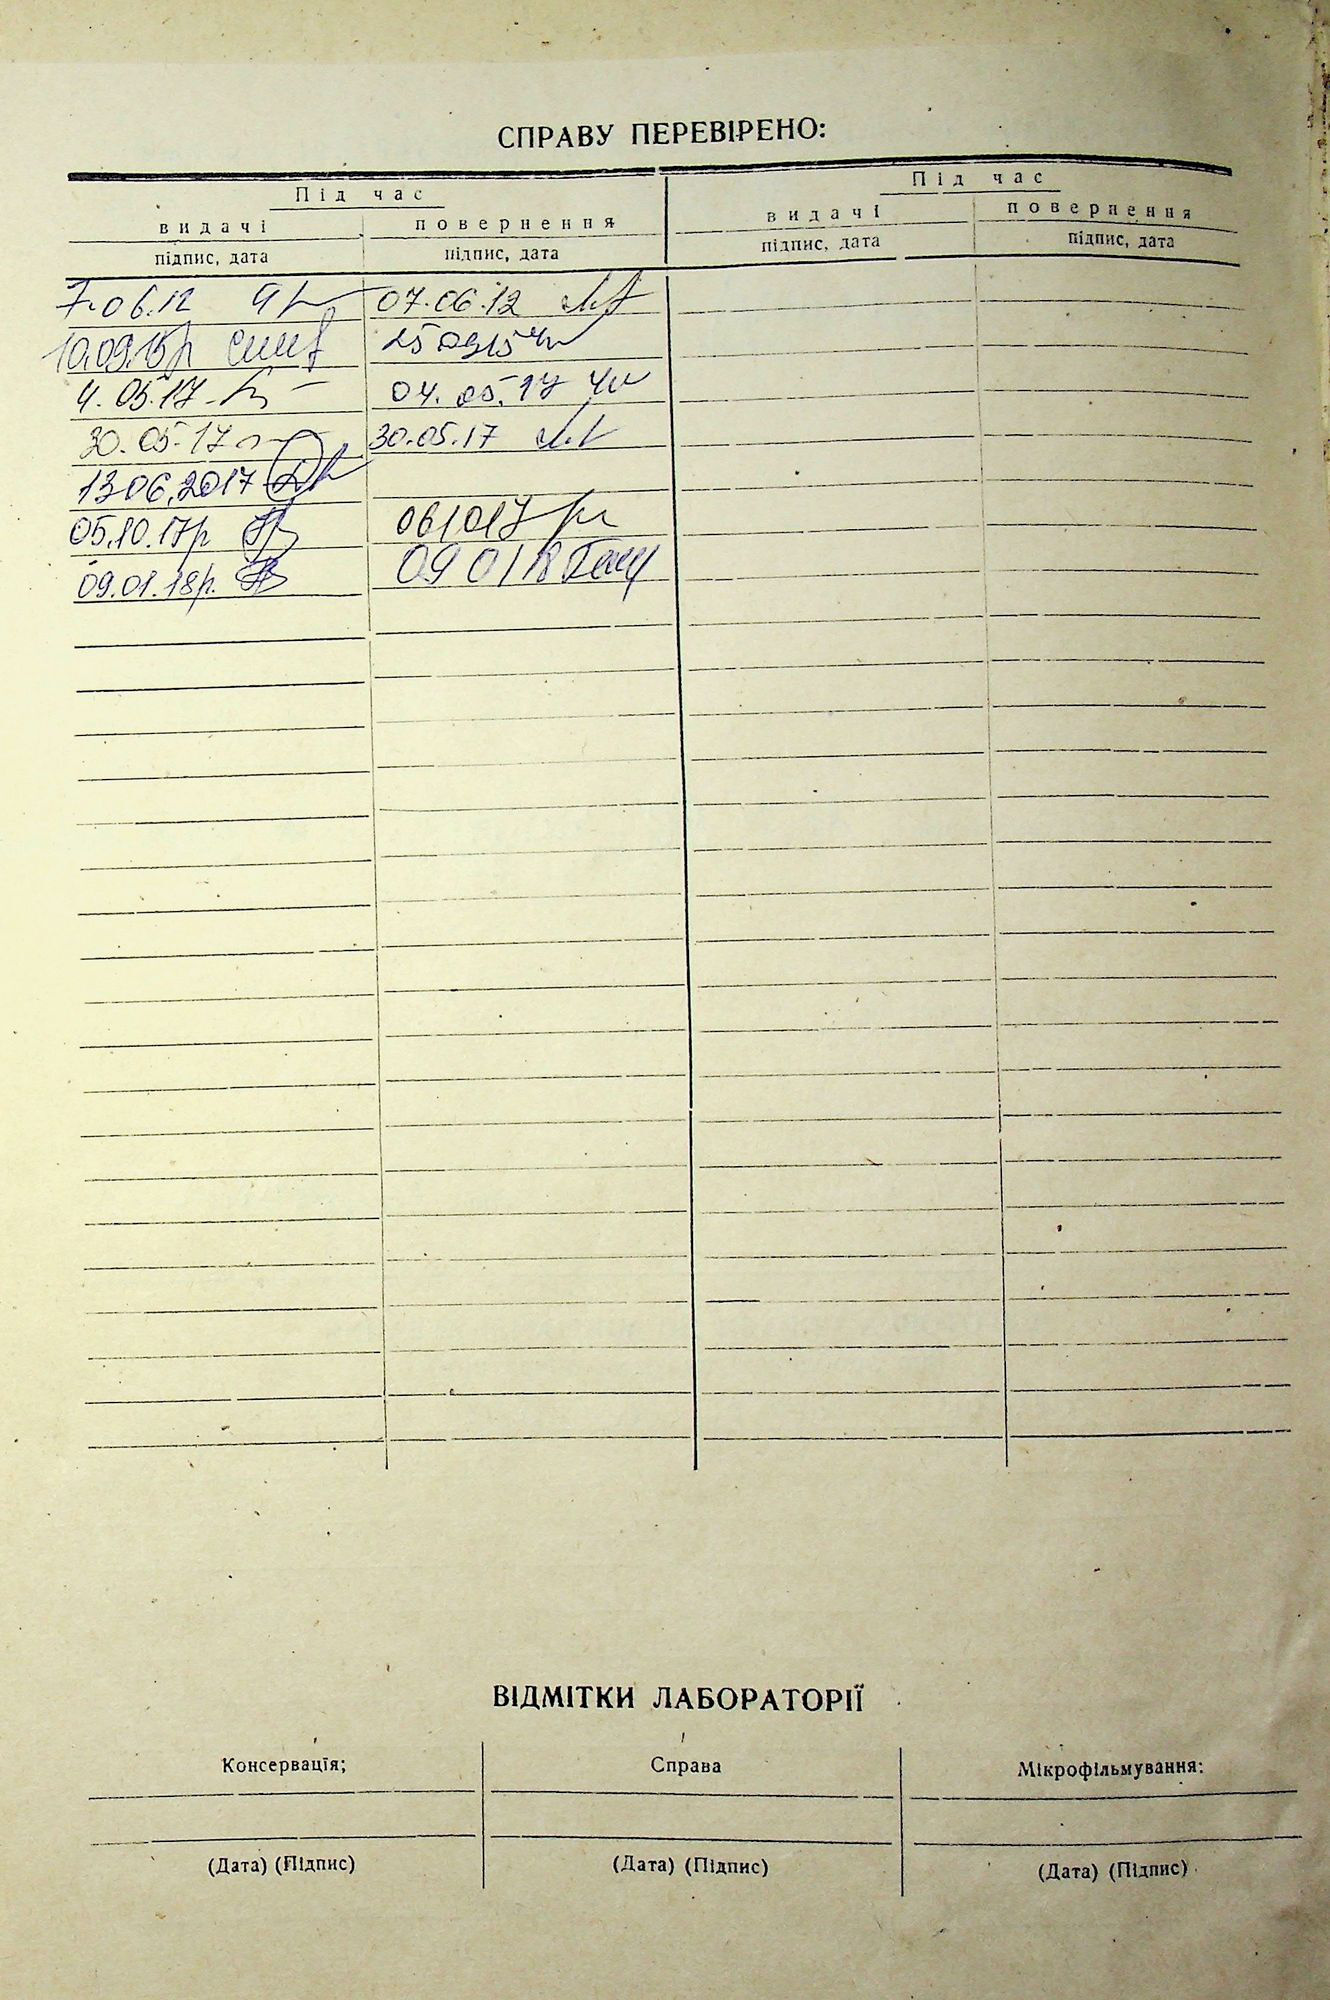 СПРАВУ ПЕРЕВІРЕНО:
Під час Під час
видачі повернення видачі повернення
підпис, дата підпис, дата підпис, дата підпис, дата
7.06.12 07.06.12
10.09.15р 25 09 15
4.05.17 04.05.17
30.05.17 30.05.17
13.06.2017
05.10.17р 061017
09.01.18р. 090118
ВІДМІТКИ ЛАБОРАТОРІЇ
Консервація; Справа Мікрофільмування:
(Дата) (Підпис) (Дата) (Підпис) (Дата) (Підпис)